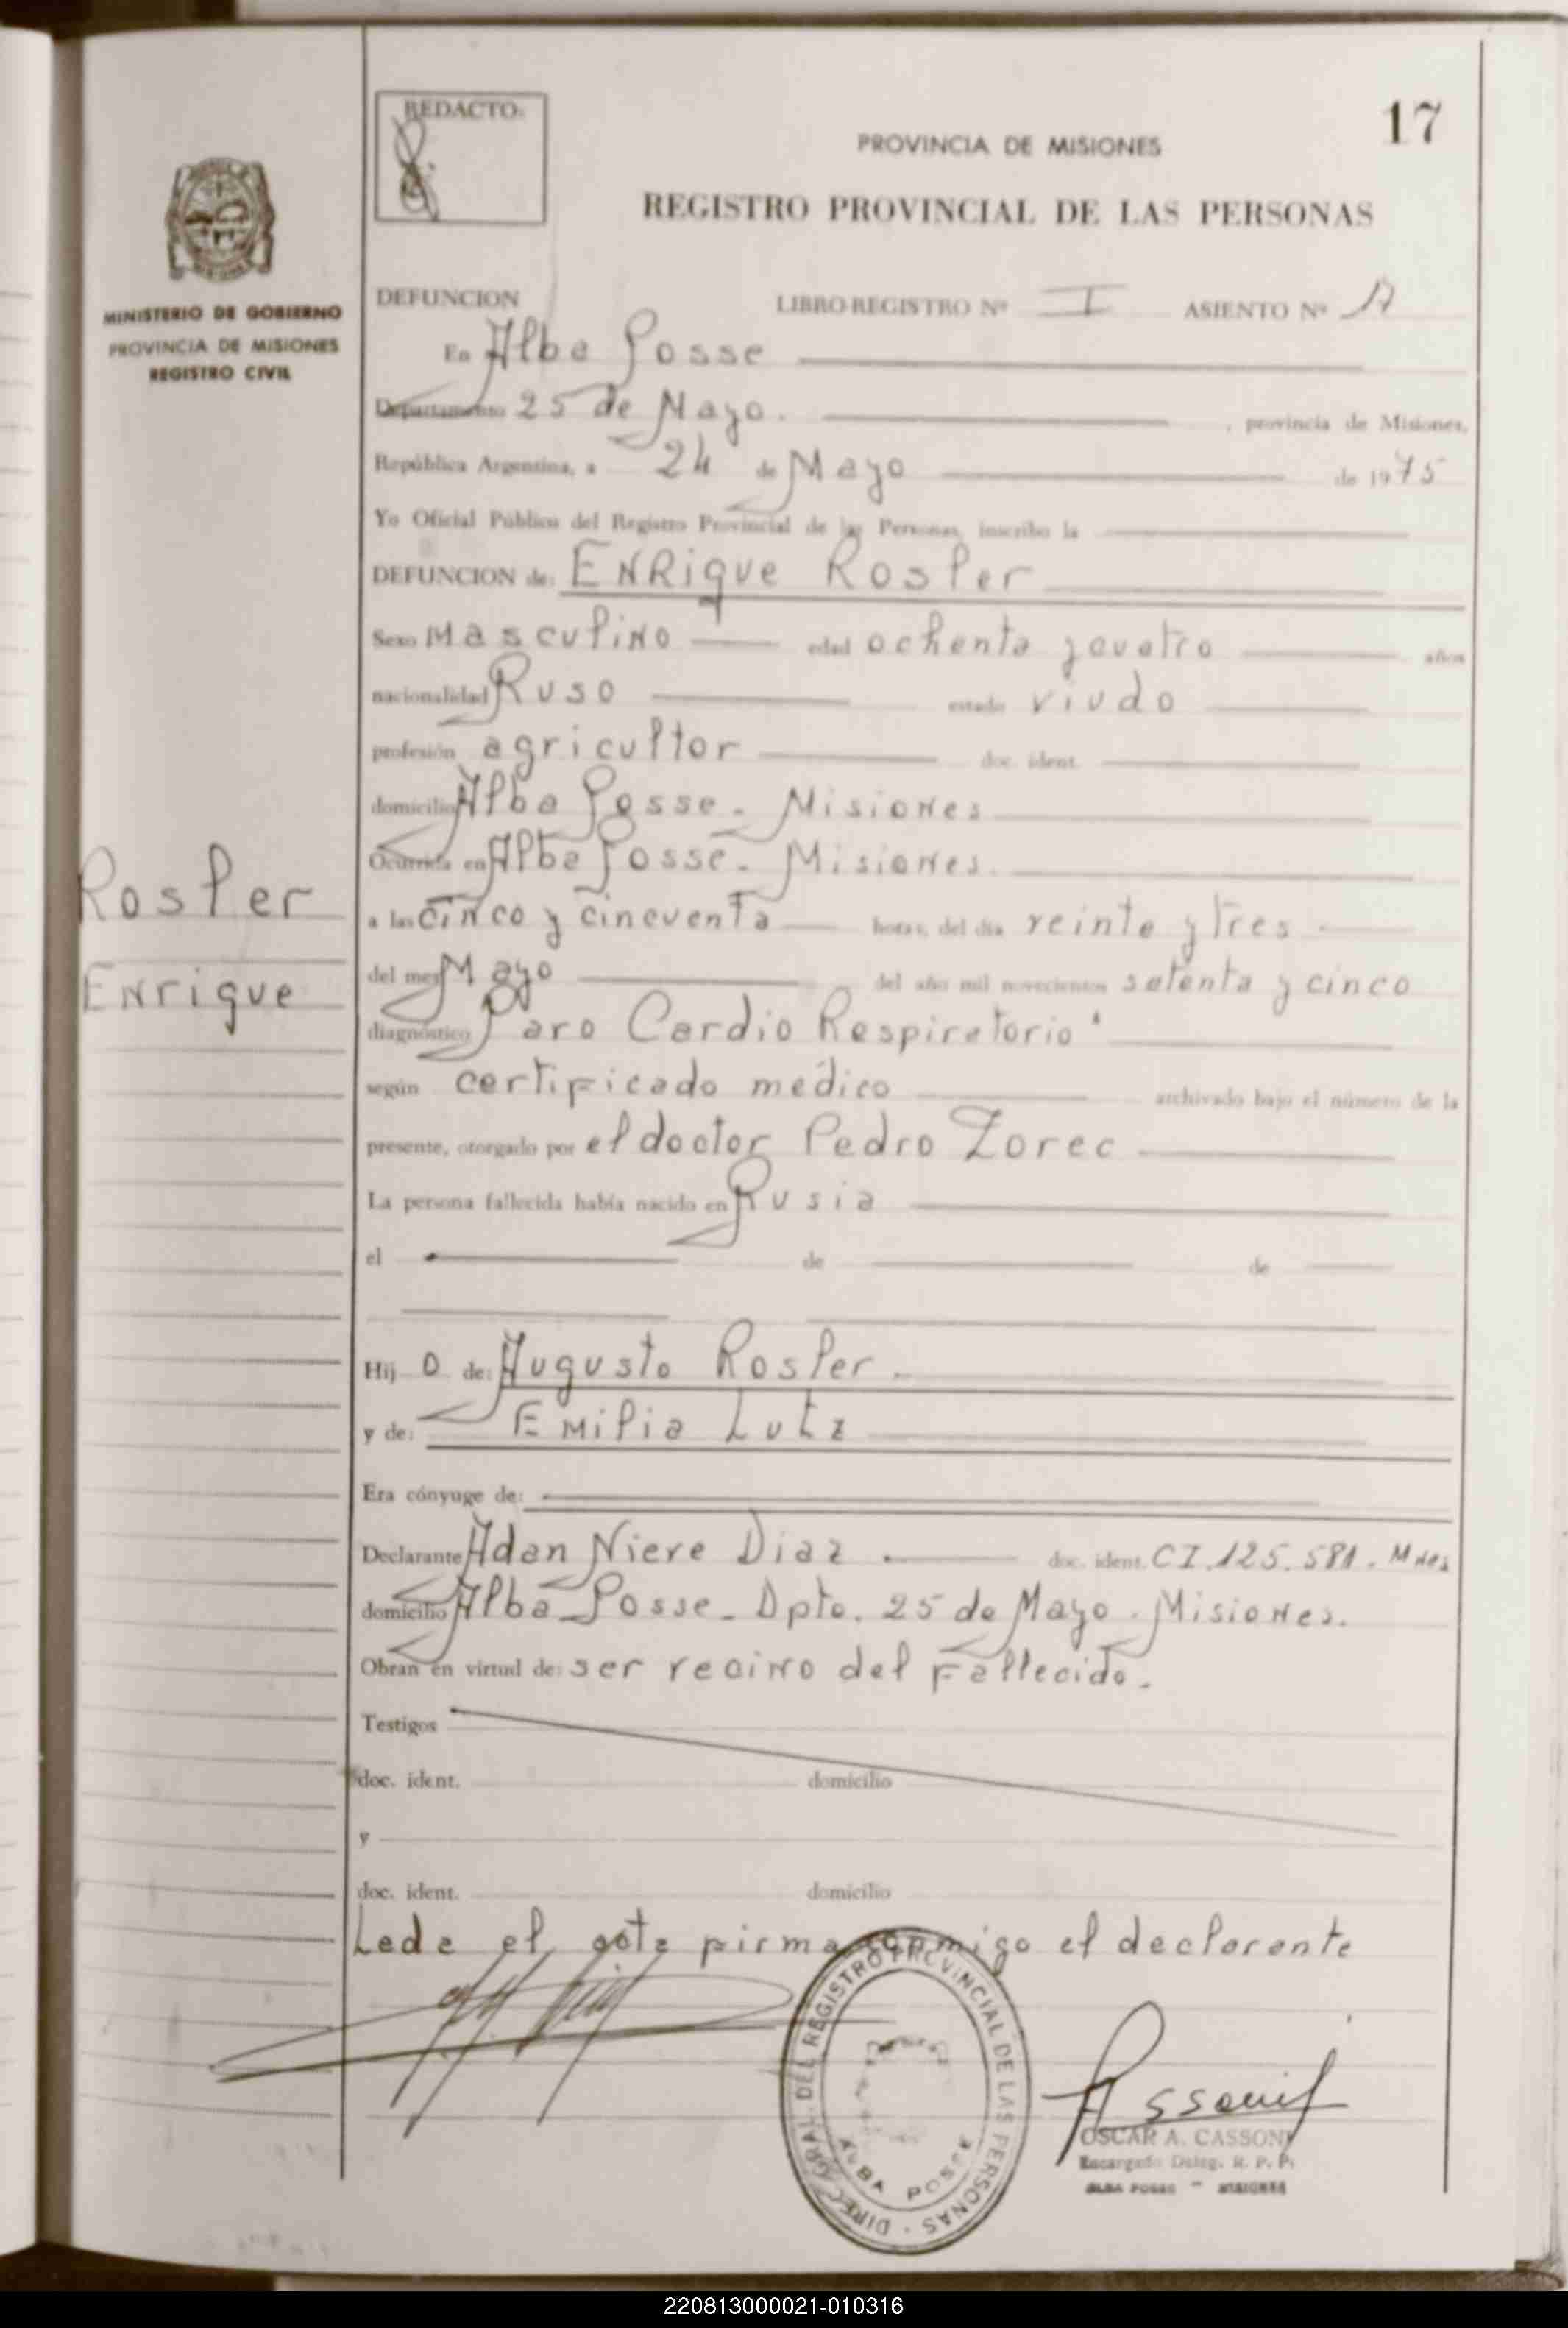 17
REDACTO:
PROVINCIA DE MISIONES
REGISTRO PROVINCIAL DE LAS PERSONAS
MINISTERIO DE GOBIERNO
PROVINCIA DE MISIONES
REGISTRO CIVIL
DEFUNCION LIBRO-REGISTRO Nº I ASIENTO Nº 17
En Alba Posse
Departamento 25 de Mayo. , provincia de Misiones,
República Argentina, a 24 de Mayo de 1975
Yo Oficial Público del Registro Provincial de las Personas, inscribo la
DEFUNCION de: ENRique Rosler
Sexo Masculino edad ochenta y cuatro años
nacionalidad Ruso estado viudo
profesión agricultor doc. ident.
domicilio Alba Posse - Misiones
Ocurrida en Alba Posse - Misiones.
Rosler
a las cinco y cincuenta horas, del día veinte y tres -
Enrique
del mes Mayo del año mil novecientos setenta y cinco
diagnóstico Paro Cardio Respiratorio
según certificado médico archivado bajo el número de la
presente, otorgado por el doctor Pedro Zorec
La persona fallecida había nacido en Rusia
el de de
Hij o de: Augusto Rosler.
y de: Emilia Lutz
Era cónyuge de:
Declarante Adan Niere Diaz. doc. ident. CI. 125.581. Mnes
domicilio Alba Posse - Dpto. 25 de Mayo. Misiones.
Obran en virtud de: ser vecino del fallecido.
Testigos
doc. ident. domicilio
y
doc. ident. domicilio
Leda el acta firma conmigo el declarante
DIREC. GRAL. DEL REGISTRO PROVINCIAL DE LAS PERSONAS
ALBA POSSE
OSCAR A. CASSONI
Encargado Deleg. R. P. P.
ALBA POSSE - MISIONES
220813000021-010316